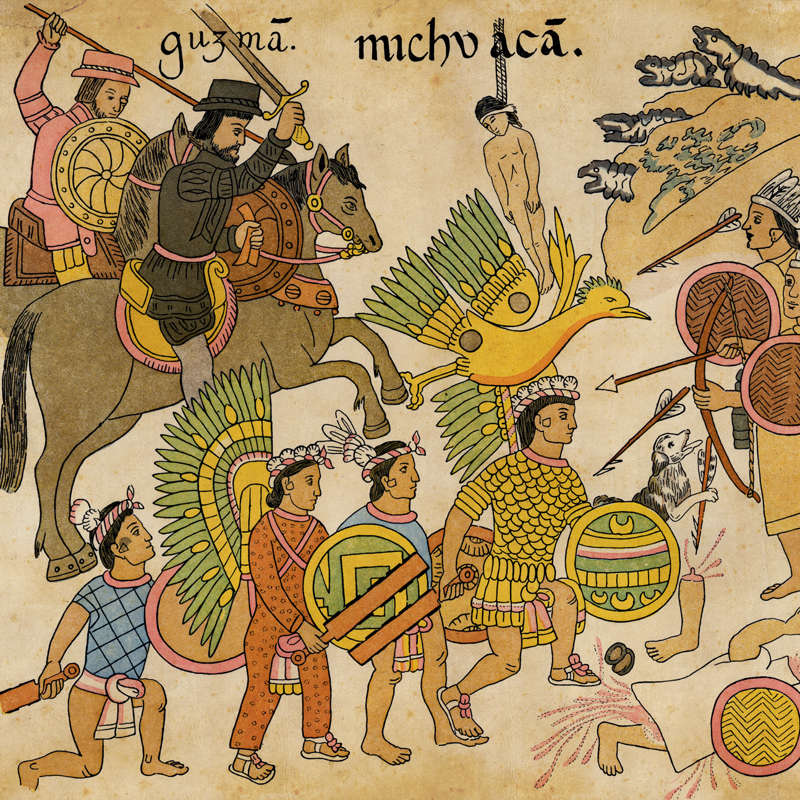 guzmā. michvacā.